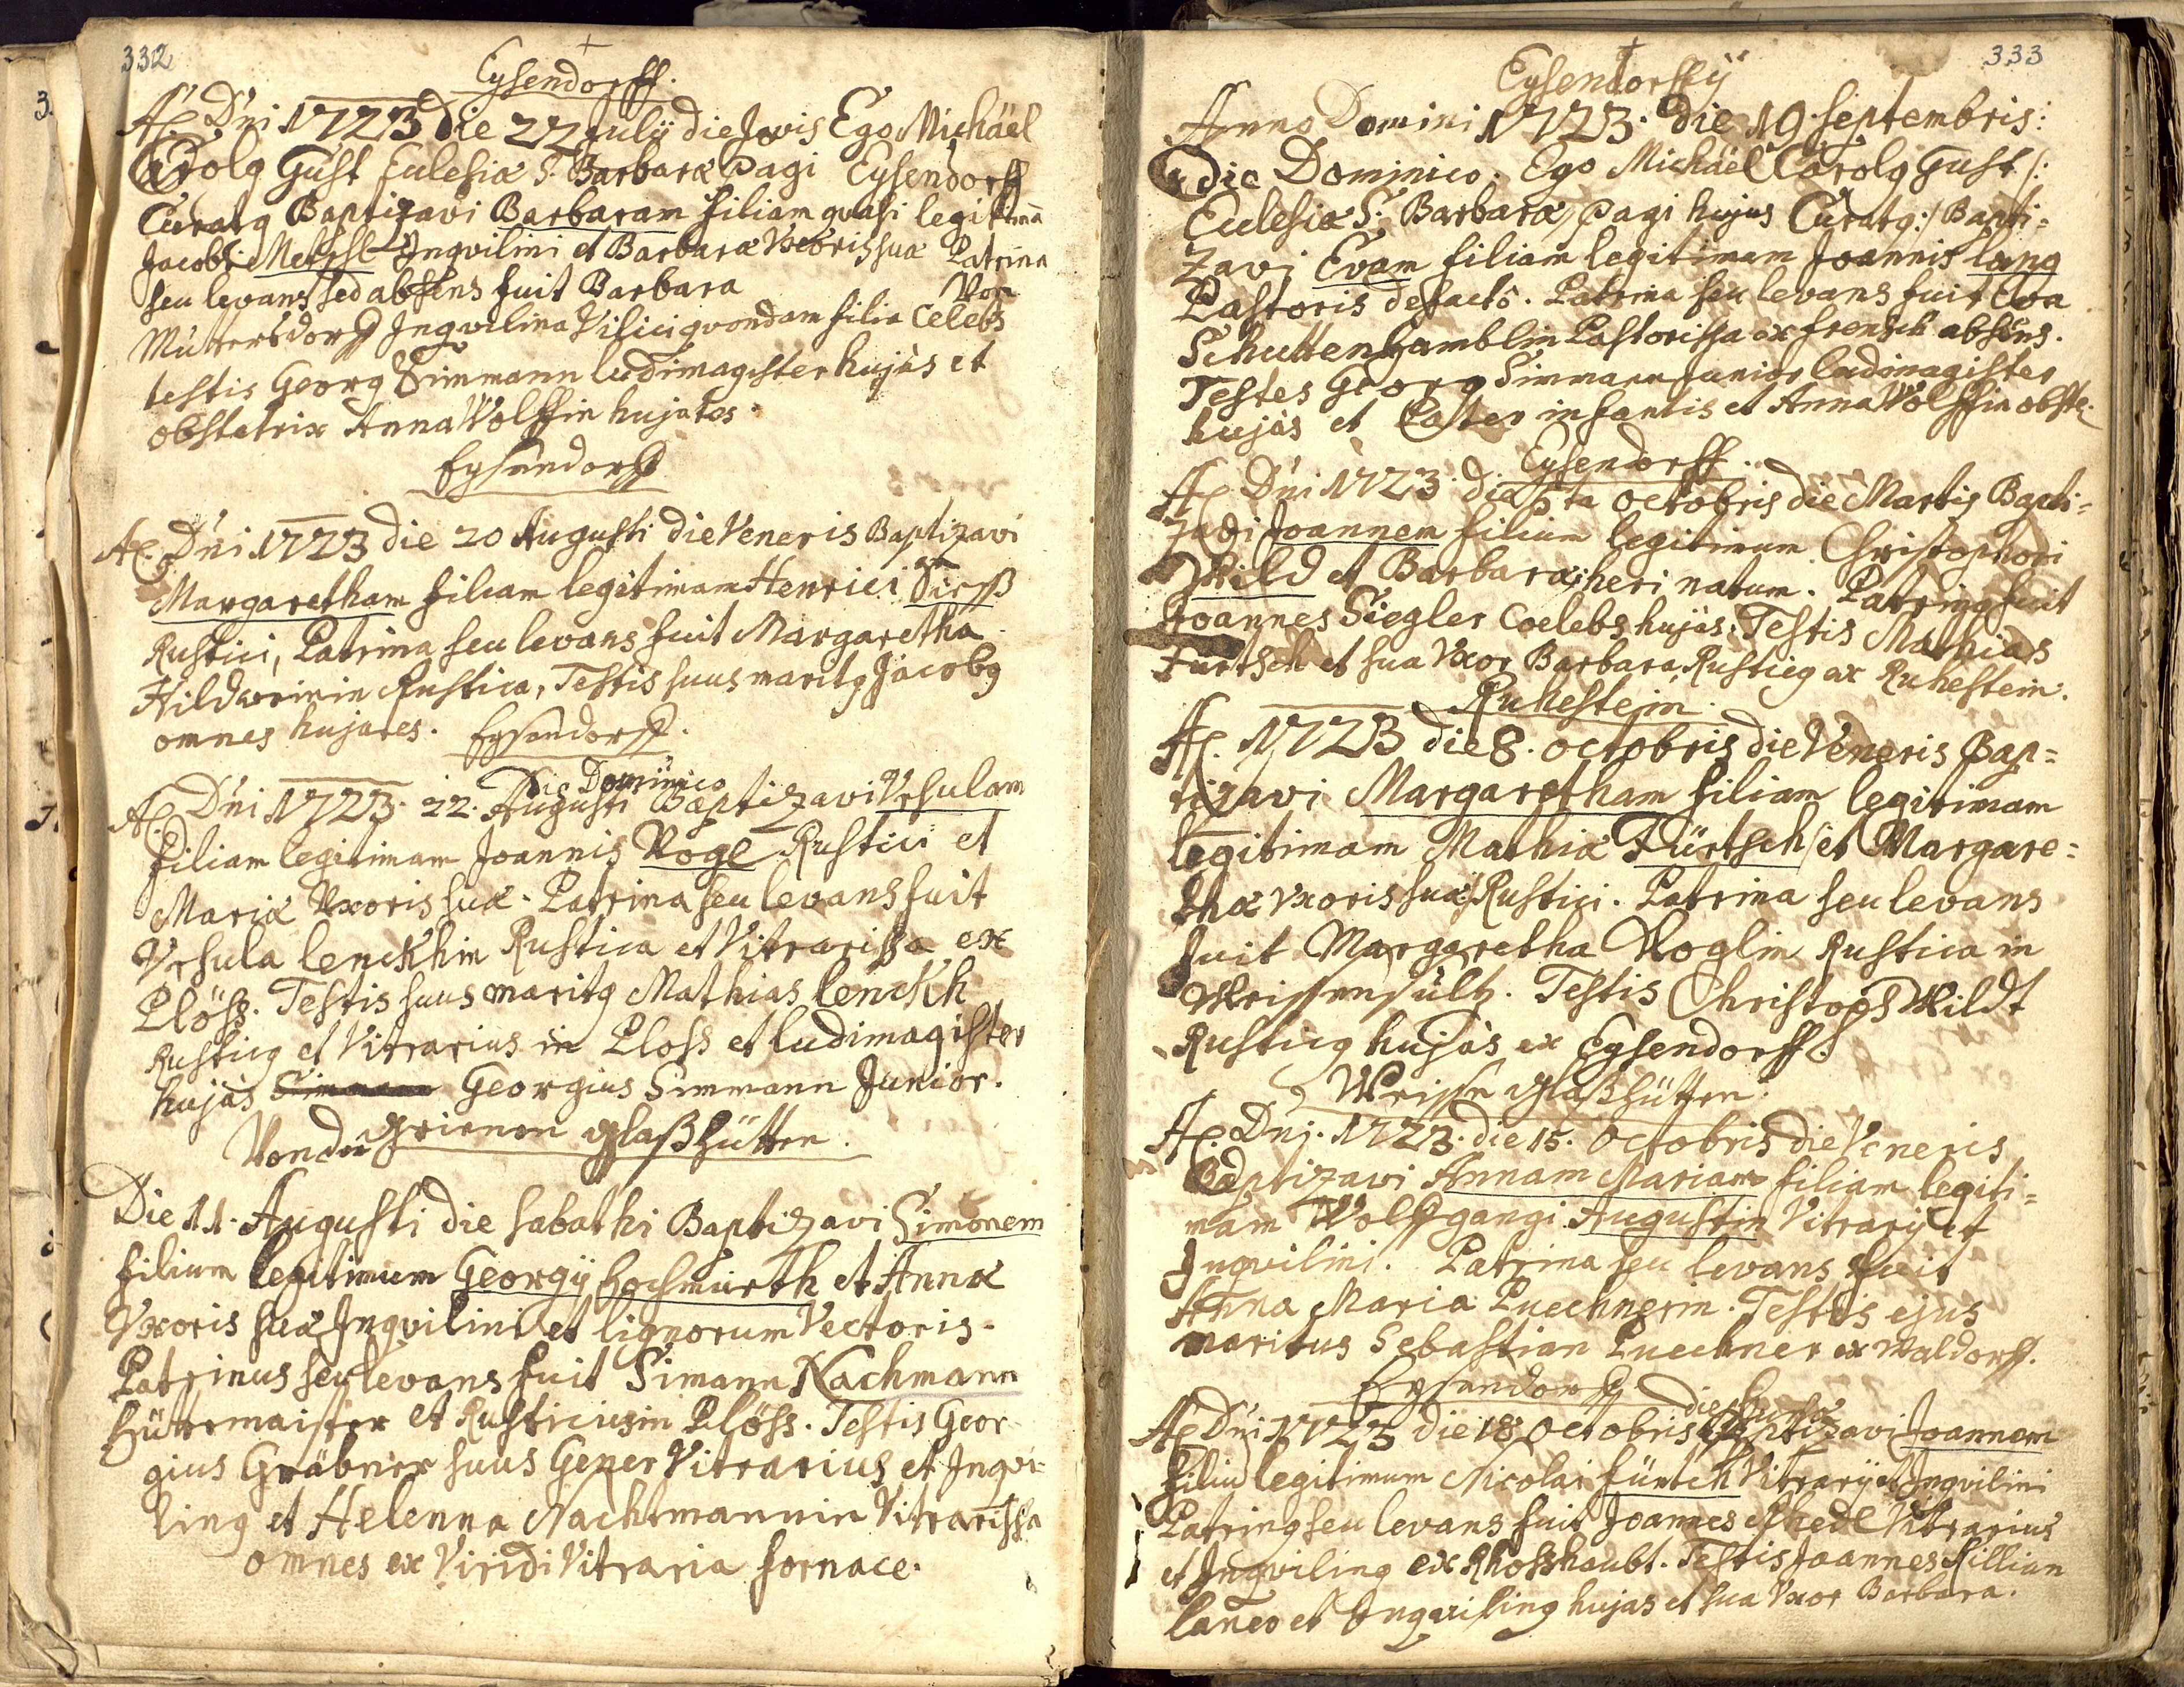 332
Eysendorff.
Aō Dni 1723 die 22 Julij die Jovis Ego Michäel
Carolg Gust Eclesiæ S. Barbaræ Pagi Eysendorff
Curatg Baptizavi Barbaram filiam quasi legitimā
Jacobi Inqvilini et Barbaræ Vxoris suæ Patrina
seu levans sed absens fuit Barbara Von
Muttersdorff Inqvilina Vilici qvondam filia Celebs
testis Georg Simmann ludimagister hujàs et
obstetrix Anna Wolffin hujates.
Eysendorff
Aō Dni 1723 die 20 Augusti die Veneris Baptizavi
Margaretham filiam legitimam Henrici
Rustici, Patrina seu levans fuit Margaretha
Rustica, Testis suus maritg Jacobg
omnes hujates. Eysendorff.
Die Dominico
Aō Dni 1723. 22. Augusti Baptizavi Vrsulam
filiam legitimam Joannis Vogl Rustici et
Mariæ Vxoris suæ. Patrina seu levans fuit
Vrsula lenckhin Rustica et Vitrarissa ex
Plöss. Testis suus maritg Mathias lenckh
Rusticg et Vitrarius in Ploss et ludimagister
hujàs Simmann Georgius Simmann Junior.
Von der Grienen Glaßhütten.
Die 11. Augusti die sabathi Baptizavi Simonem
filium legitimum Georgij hochmurth et Annæ
Vxoris suæ Inqvilini et lignorum Vectoris.
Patrinus seu levans fuit Simann Nachmann
Hüttmaister et Rusticus in Plöss. Testis Geor
gius Gräbner suus Gener Vitrarius et Inqvi-
ling et Helenna Nachtmannin Vitrarissa
omnes ex Viridi Vitraria fornace.
333
Eysendorffij
Anno Domini 1723. die 19. septembris:
die Dominico. Ego Michäel Carolg Gust /:
Eclesiæ S. Barbaræ Pagi hujus Curatg:/ Bapti=
zavi Evam filiam legitimam Joannis lang
Pastoris defactò. Patrina seu levans fuit Eva
Pastorissa ex frensch absens.
Testes Georg Simmann Junior ludimagister
hujàs et Pater infantis et Anna Wolffin obste.
Eysendorff.
Aō Dni 1723. die 5ta octobris die Martis Bapti=
zavi Joannem filium legitimum Christophori
Wild et Barbaræ, heri natum. Patring fuit
Joannes Siegler Coelebs hujàs. Testis Mathias
Fürtsch et sua Vxor Barbara, Rusticg ex Ruhestein.
Ruhestein.
Aō 1723 die 8. octobris die Veneris Bap=
tizavi Margaretham filiam legitimam
legitimam Mathiæ Fürtsch et Margare=
thæ Vxoris suæ, Rustici. Patrina seu levans
fuit Margaretha Voglin Rustica in
Weissensültz. Testis Christoph Wildt
Rusticg hujàs ex Eysendorff.
Weissen Glaßhütten.
Aō Dni. 1723. die 15. Octobris die Veneris
Baptizavi Annam Mariam filiam legiti=
mam Wolffgangi Augustin Vitrarij et
Inqvilini. Patrina seu levans fuit
Anna Maria Puechnerin. Testis ejus
maritus Sebastian Puechner ex Waldorff.
Eysendorff
Aō Dni 1723 die 18. Octobris Baptizavi Joannem
filiū legitimum Nicolai fürtch Vitrarij et Inqvilini
Patring seu levans fuit Joannes Vitrarius
et Inqviling ex Rhosshaubt. Testis Joannes Killian
laneo et Inqviling hujas et sua Vxor Barbara.